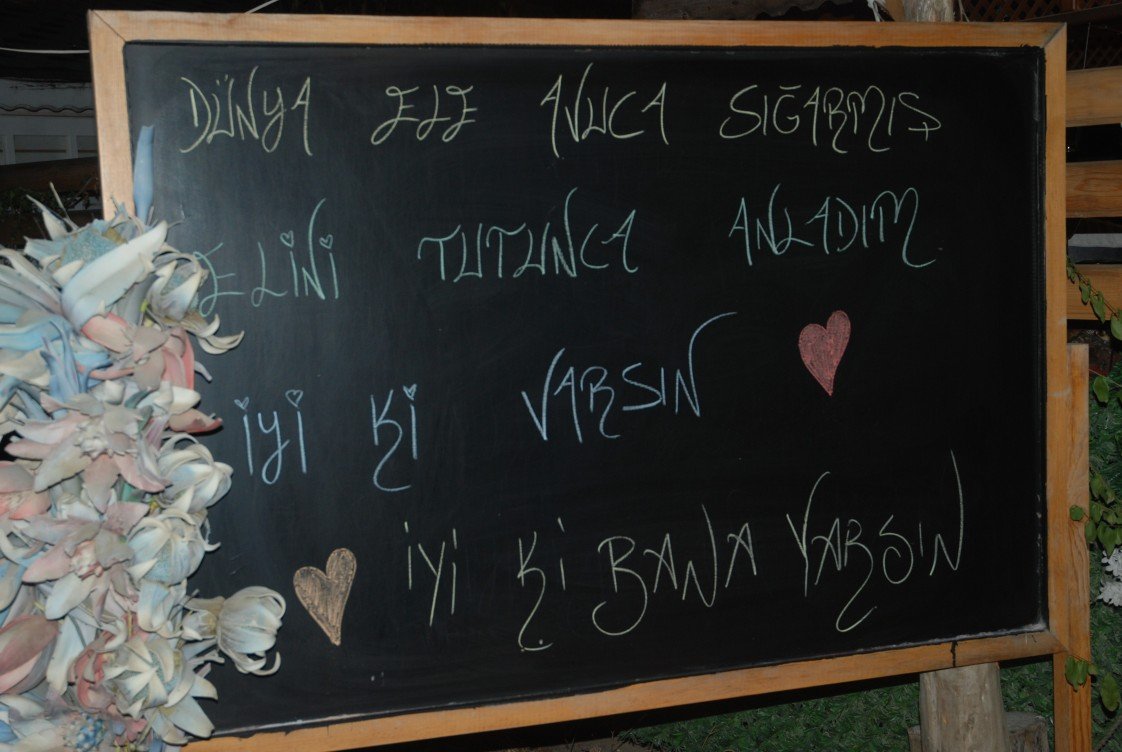 DÜNYA ELE AVUCA SIĞARMIŞ
ELİNİ TUTUNCA ANLADIM
İYİ Kİ VARSIN
İYİ Kİ BANA VARSIN